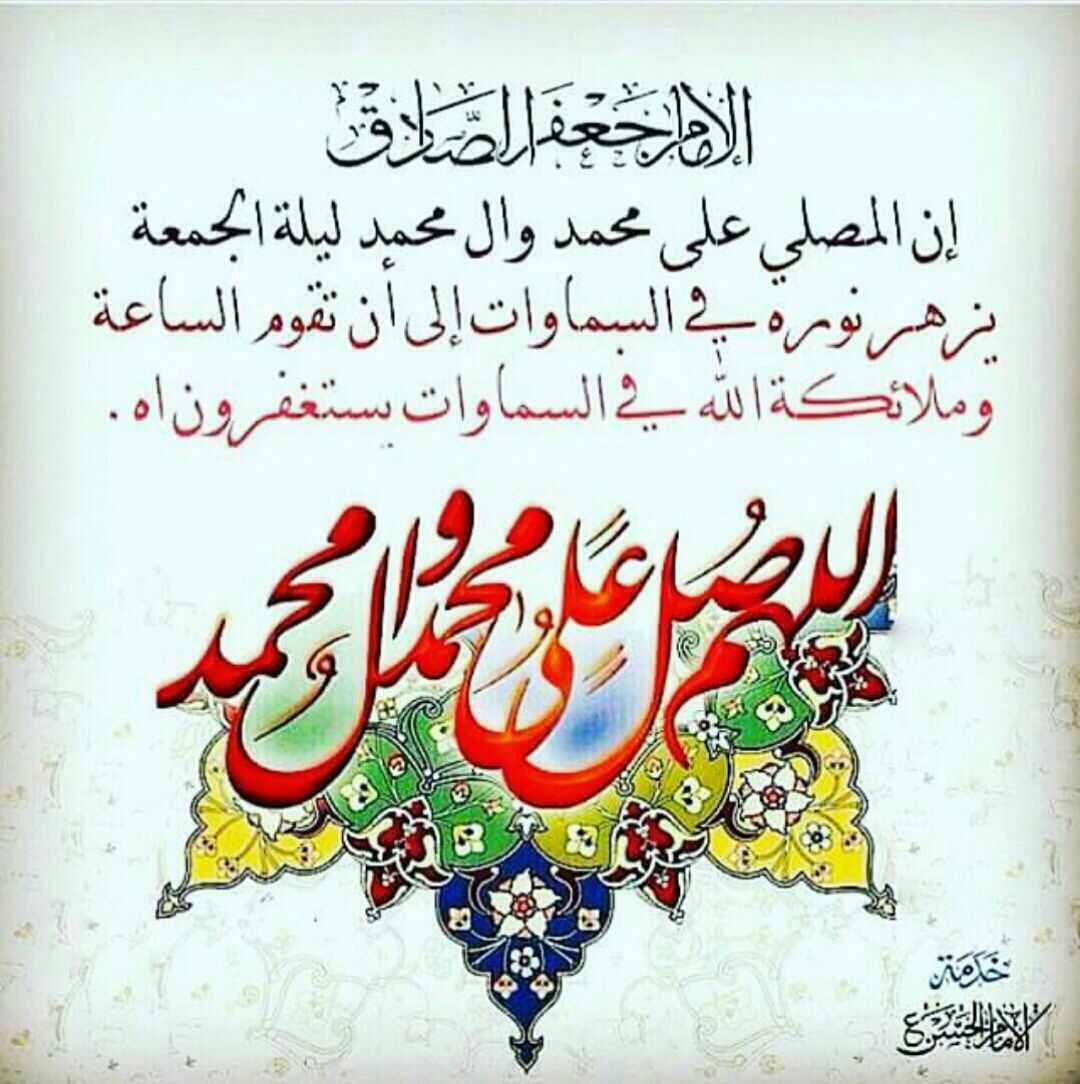 الإمام جَعْفَر الصَّادِق
إن المصلي على محمد وال محمد ليلة الجمعة
يزهر نوره في السماوات إلى أن تقوم الساعة
وملائكة الله في السماوات يستغفرون له .
اللهم صُلِ عَلى محمد وال محمد
خدمة
الإمام الحسين ع